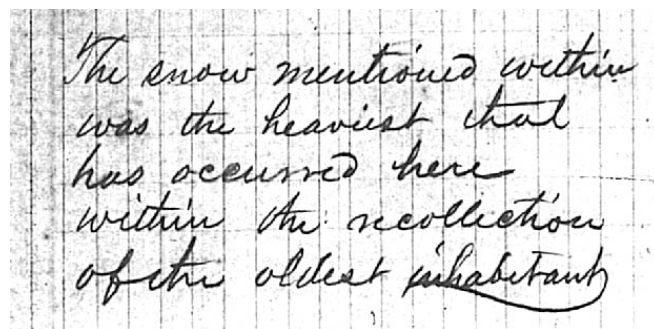 The snow mentioned within
was the heaviest that
has occurred here
within the recollection
of the oldest inhabitant